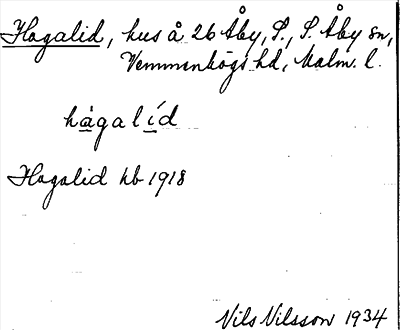 Hagalid, hus å 26 Åby, S., S. Åby sn,
Vemmenhögs hd, Malm. l.
hågalíd
Hagalid kb 1918
Nils Nilsson 1934